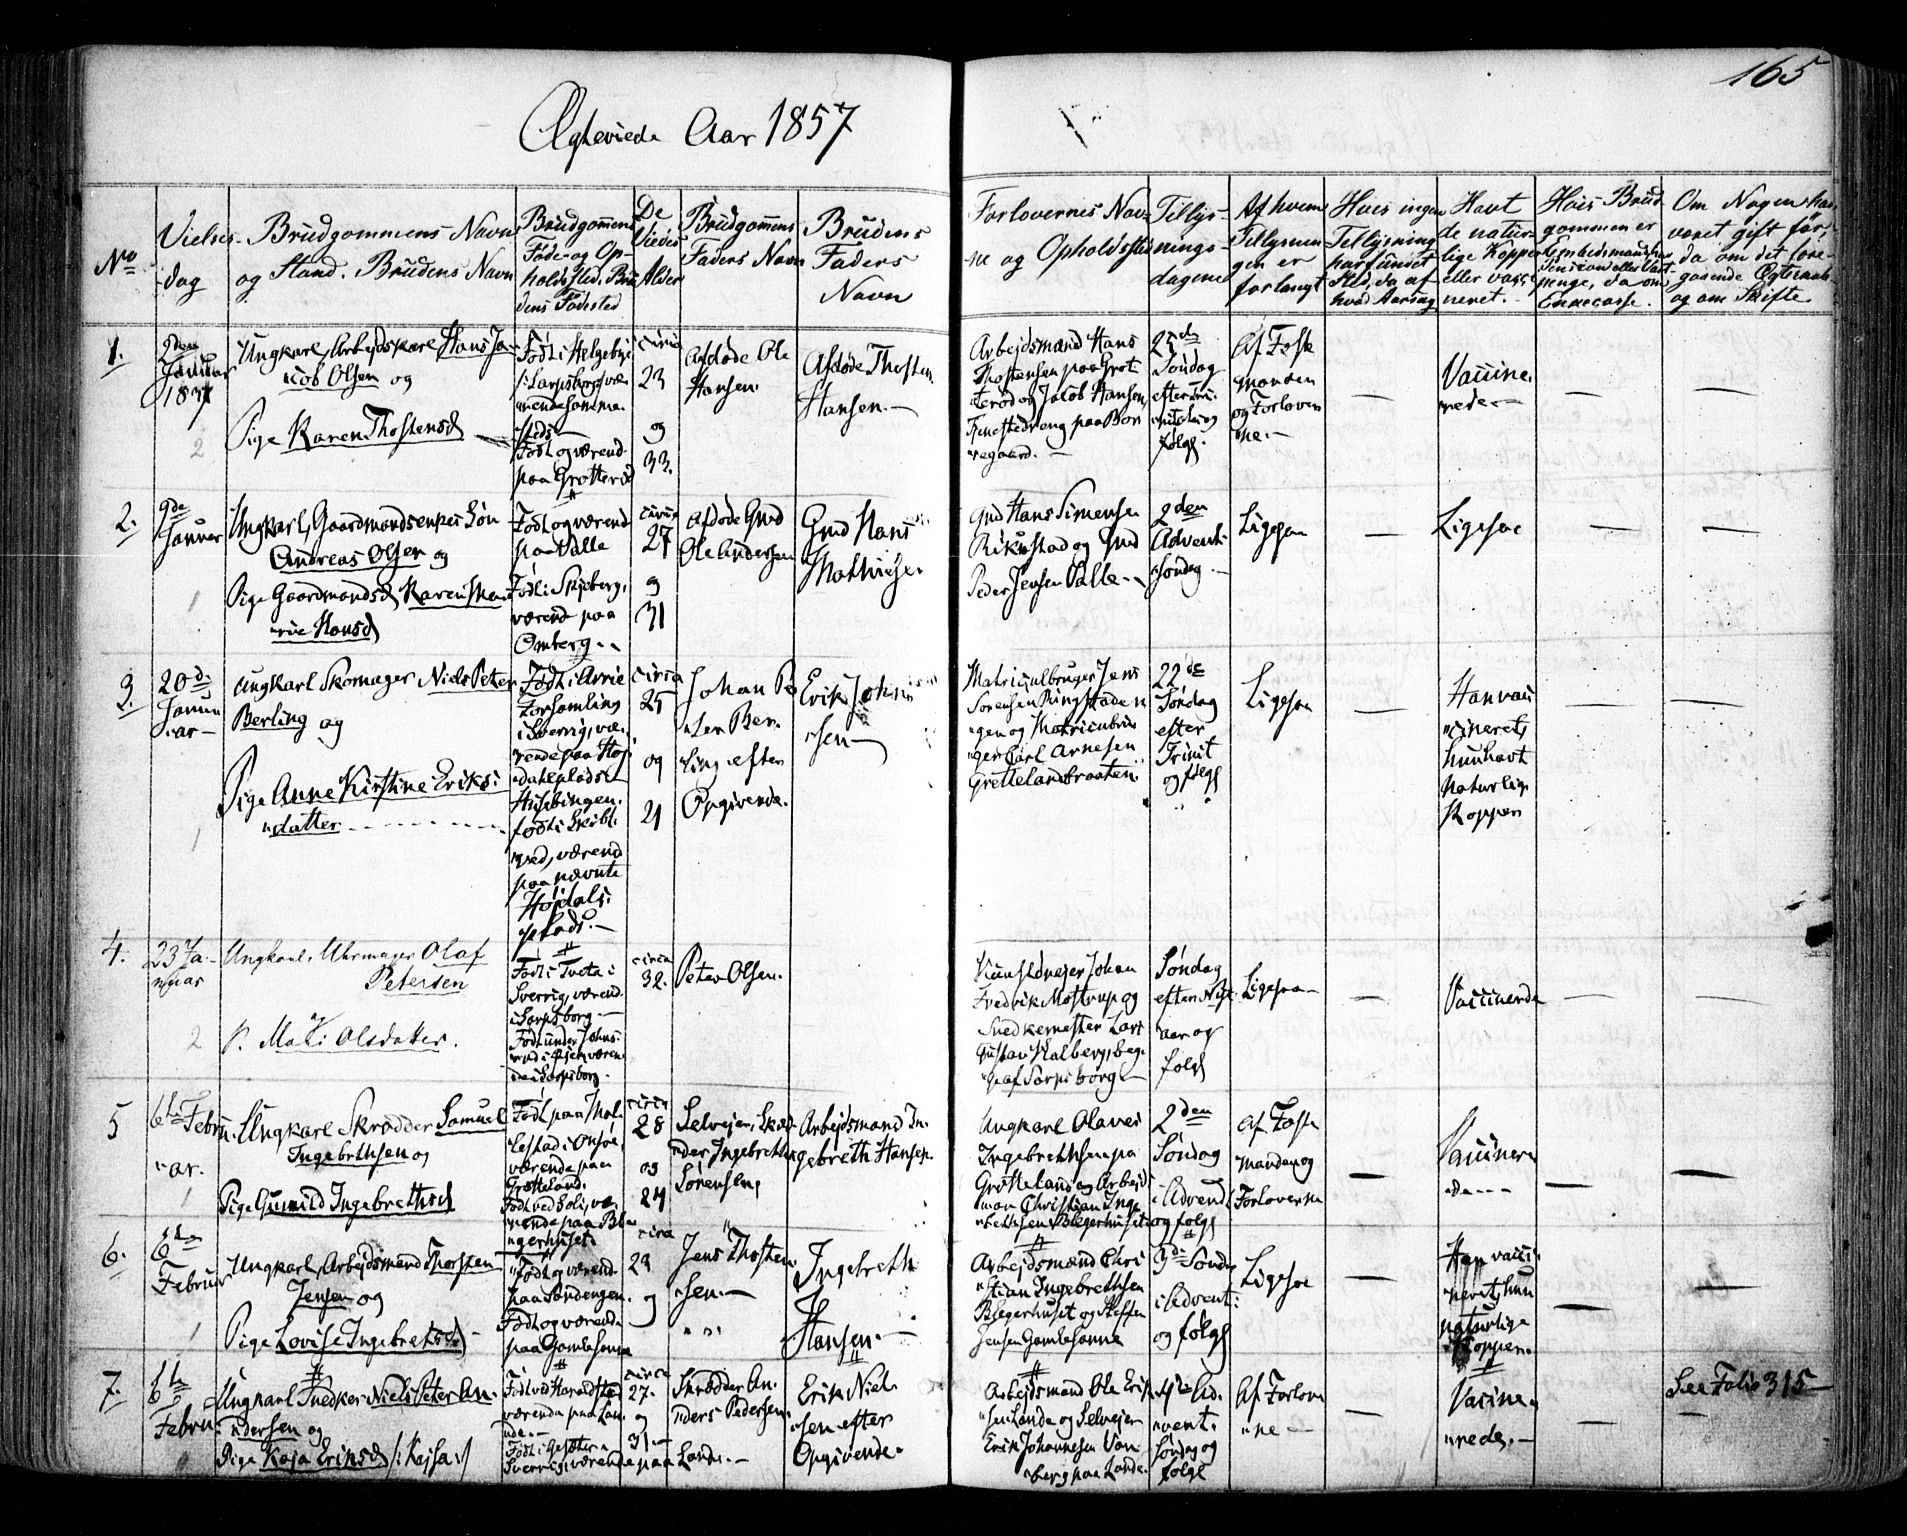 165
Ægteviede Aar 1857
No
Vielses-
dag
Brudgommens Navn
og Stand. Brudens Navn
Brudgommens
Føde- og Op-
holdssted. Bru-
dens Fødested
De
Viedes
Alder
Brudgommens
Faders Navn
Brudens
Faders
Navn
Forlovernes Nav-
ne og Opholdssted
Tillys-
nings-
dagene
Af hvem
Tillysnin-
gen er
forlangt
Hvis ingen
Tillysning
har fundet
Sted, da af
hvad Aarsag
Havt
de natur-
lige Kopper
eller vacci-
neret.
Hvis Brud-
gommen er
Embedsmand
Pension eller Vart-
penge, da om
Enkecasse.
Om Nogen har
været gift før,
da om det fore-
gaaende Ægteskab
og om Skifte
1.
2den
Januar
1857
2
Ungkarl, Arbejdskarl Hans Ja-
cob Olsen og
Pige Karen Thostensd
Født i Helgebye
i Sarpsborg væ-
rende samme-
steds
Født og værend
paa Grotterød
circa
23
og
33.
Afdøde Ole
Hansen.
Afdøde Thosten
Hansen.
Arbejdsmand Hans
Thostensen paa Grot-
terød og Jacob Hansen,
Tjenestedreng paa Bor-
regaard.
25de
Søndag
efter Tri-
nitatis og
følgd.
Af Foste
manden
og Forlover
ne.
—
Vaccine-
rede
—
—
2.
9de
Januar
1
Ungkarl, Gaardmandsenkes Søn
Andreas Olsen og
Pige Gaardmandsd Karen Ma-
rie Hansd
Født og værend
paa Valle
Født i Skjeberg,
værend paa
Omberg
circa
27
og
31
Afdøde Gmd
Ole Andersen
Gmd Hans
Mathisen.
Gmd Hans Simensen
Rikustad og Gmd
Peder Jensen Valle
2den
Advent-
søndag
Ligesaa
—
Ligesaa
—
—
3.
20de
Janu-
ar
1
Ungkarl Skomager Niels Peter
Berling og
Pige Anne Kirstine Eriks-
datter
Født i Avrie
Forsamling
i Sverrig, væ-
rende paa Høj-
dalsplads
Husebingen.
født i Skibt-
ved, værend
paa nævnte
Højdals-
plads.
circa
25
og
21
Johan Pe-
ter Ber-
ling efter
Opgivende.
Erik Johan-
sen
Matriculbruger Jens
Sørensen Ringstaden
gen og Matriculbru-
ger Carl Arnesen
Grettelandbraaten.
22de
Søndag
efter
Trinit
og følgd
Ligesaa
—
Han vac-
cineret,
hun havt
Naturlige
Kopper
—
—
4.
23 Ja-
nuar
2
Ungkarl, Uhrmager Olaf
Petersen
P. Mati Olsdatter.
Født i Tveta i
Sverrig, værend
i Sarpsborg.
Født under Johns-
rud i Øjer, væren-
de i Sarpsborg.
circa
32.
Peter Olsen.
Kunstdrejer Johan
Fredrik Mostrup og
Snedkermester Lars
Gustav Kalberg, beg-
ge af Sarpsborg
Søndag
efter Nyt-
aar og
følgd
Ligesaa
—
Vaccinerde
—
—
5
6te Febru-
ar.
1
Ungkarl Skrædder Samuel
Ingebrethsen og
Pige Gunild Ingebrethsd
Født paa Mol-
lestad i Onsøe,
værende paa
Grøtteland.
Født ved Soli, væ-
rende paa Ble-
gerhuset.
circa
28
og
24
Selvejer, Skræd-
der Ingebrethen
Sørensen,
Arbejdsmand In-
gebreth Hansen.
Ungkarl Olaves
Ingebrethsen paa
Grøtteland og Arbejds-
man Christian Inge-
brethsen Blegerhuset
2den
Søndag
i Advent
og følgd
Af Foste
manden og
Forloverne
—
Vaccinere-
de
—
—
6.
6te
Februar
1
Ungkarl, Arbejdsmand Thorsten
Jensen og
Pige Lovise Ingebretsd
Født og værend
paa Søndengen.
Født og værend
paa Gamlesanne
circa
23
og
Jens Thosten-
sen.
Ingebreth
Hansen.
Arbejdsmand Chri-
stian Ingebrethsen
Blegerhuset og Steffen
Jensen Gamlesanne
3de Søndag
i Advent
og følgd
Ligesaa
—
Han vacci-
neret, hun
naturlige
Kopper.
—
—
7.
6te
Febru-
Ungkarl Snedker Niels Peter An-
dersen og
Pige Kaja Eriksd /: Kajsa :/
Født ved Harridsted
værende paa Lan-
de.
Født i Gesæter
Sverrig, værende paa Lande.
circa
27.
og
31.
Skrædder An-
ders Pedersen.
Erik Niel-
sen efter
Opgivende.
Arbejdsmand Ole Erik-
sen Lande og Selvejer
Erik Johannesen Van-
berg paa Lande.
4de Ad-
vent-
Søndag og
følgd
Af Forlover
ne
—
Vacine-
rede.
—
See Folio 315
—